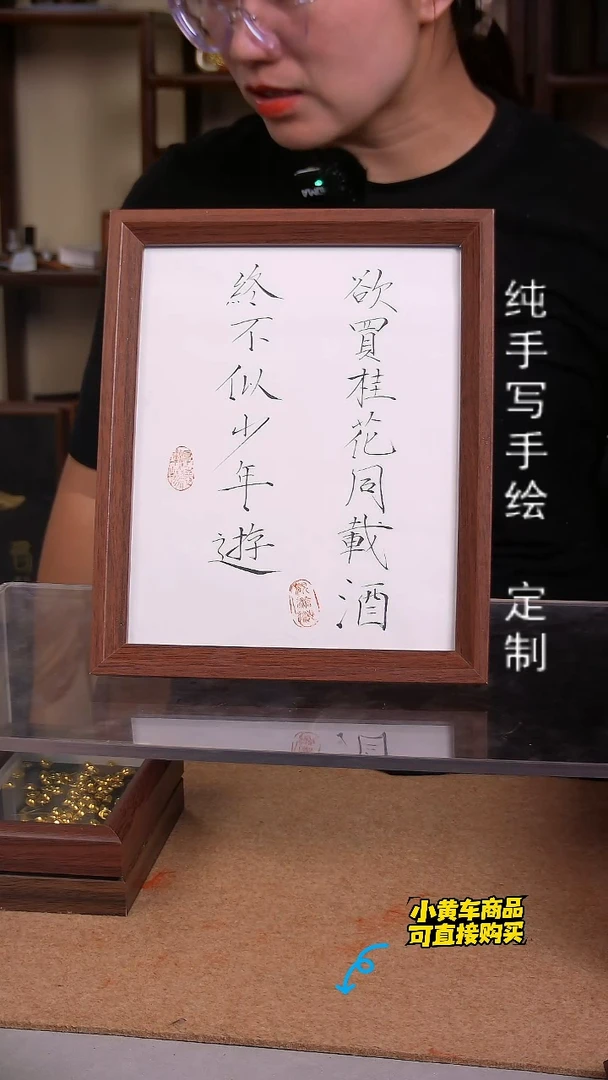 欲買桂花同載酒
終不似少年遊
纯手写手绘 定制
小黄车商品
可直接购买